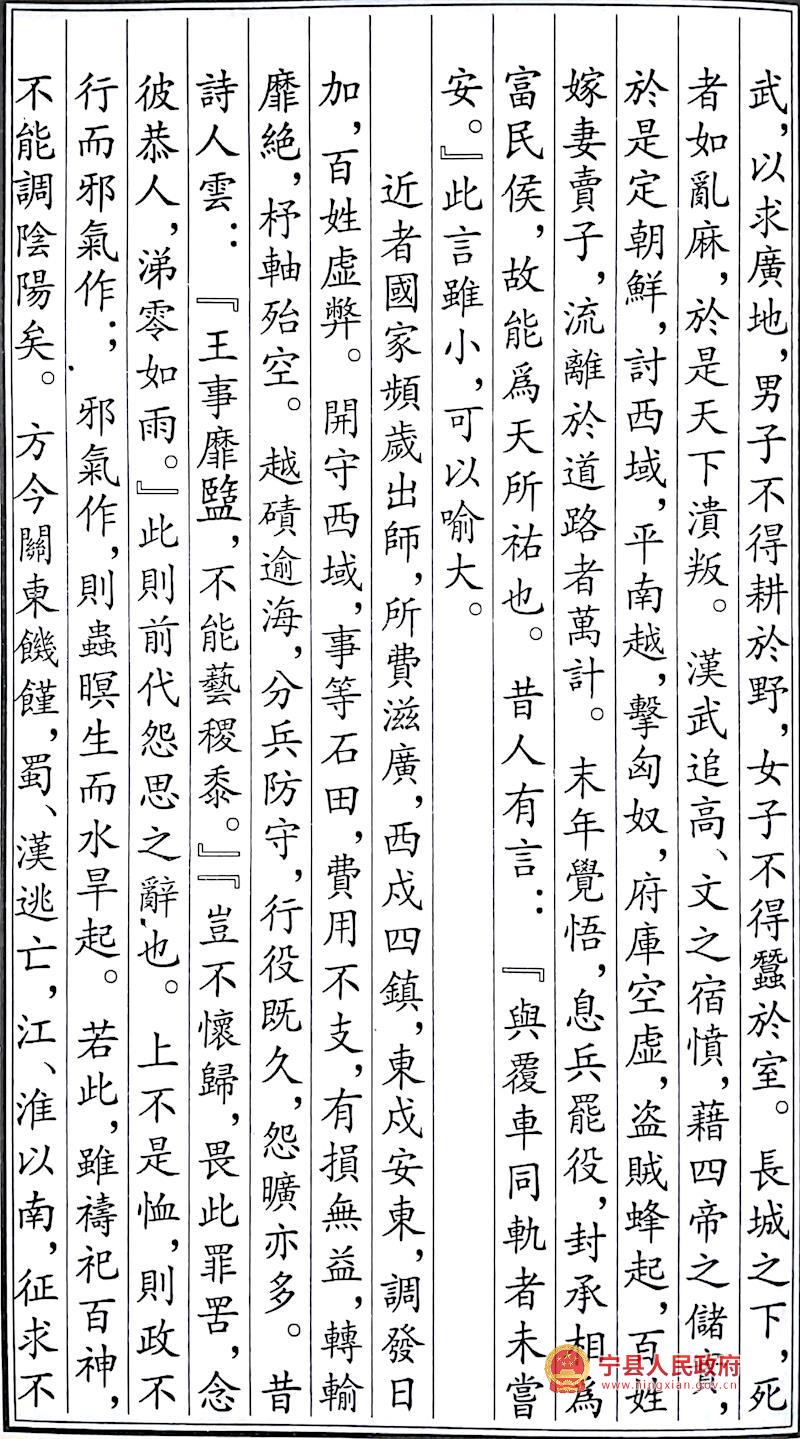 武，以求廣地，男子不得耕於野，女子不得蠶於室。長城之下，死
者如亂麻，於是天下潰叛。漢武追高、文之宿憤，藉四帝之儲實，
於是定朝鮮，討西域，平南越，擊匈奴，府庫空虛，盜賊蜂起，百姓
嫁妻賣子，流離於道路者萬計。末年覺悟，息兵罷役，封承相為
富民侯，故能爲天所祐也。昔人有言：『與覆車同軌者未嘗
安。』此言雖小，可以喻大。
近者國家頻歲出師，所費滋廣，西戍四鎮，東戍安東，調發日
加，百姓虛弊。開守西域，事等石田，費用不支，有損無益，轉輸
靡絶，杼軸殆空。越磧逾海，分兵防守，行役既久，怨曠亦多。昔
詩人雲：『王事靡盬，不能藝稷黍。』『豈不懷歸，畏此罪罟，念
彼恭人，涕零如雨。』此則前代怨思之辭也。上不是恤，則政不
行而邪氣作；邪氣作，則蟲暝生而水旱起。若此，雖禱祀百神，
不能調陰陽矣。方今關東饑饉，蜀、漢逃亡，江、淮以南，征求不
宁县人民政府
www.ningxian.gov.cn